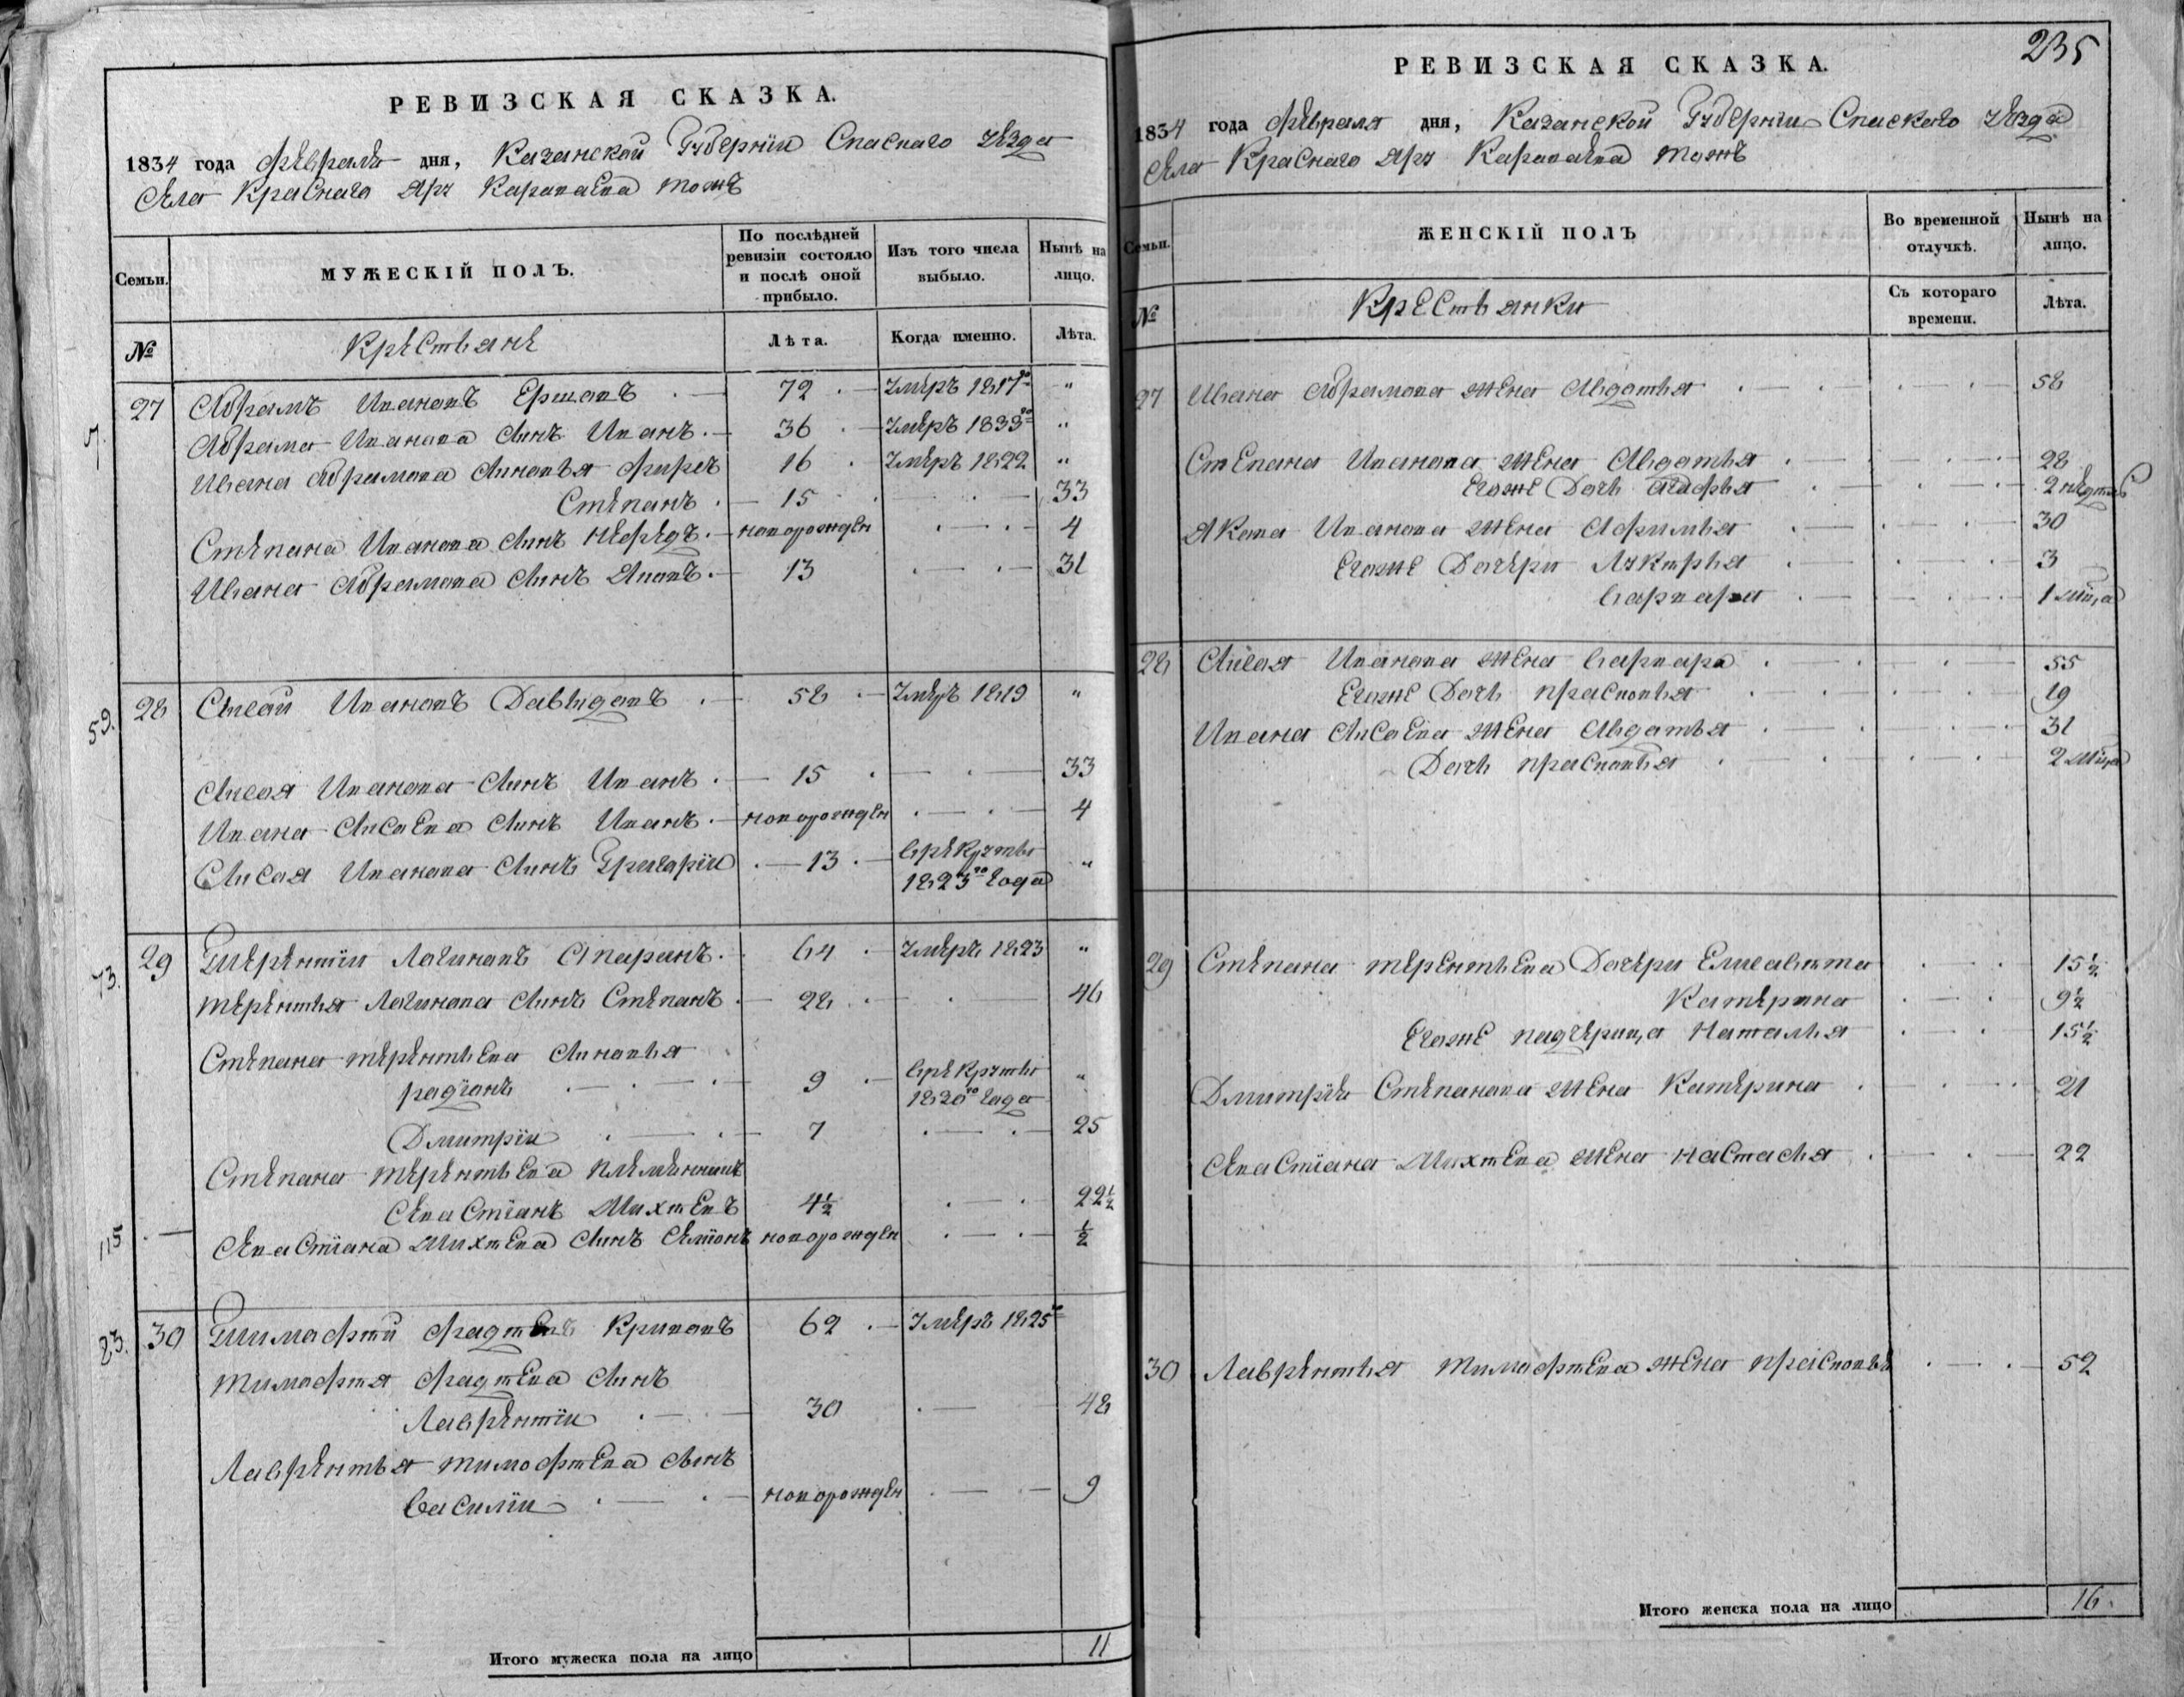 РЕВИЗСКАЯ СКАЗКА.
1834 года февраля дня, Казанской Губернiи Спаскаго уѣзда
Села Краснаго Яру Карапаева тожъ
Семьи.
МУЖЕСКІЙ ПОЛЪ.
По послѣдней ревизіи состояло и послѣ оной прибыло.
Изъ того числа выбыло.
Нынѣ на лицо.
№
Крестьяне
Лѣта.
Когда именно.
Лѣта.
7.
27 Абрамъ Ивановъ Ершовъ 72 умеръ 1817го "
Абрама Иванова сынъ Иванъ 36 умеръ 1833го "
Ивана Абрамова сыновья 16 умеръ 1822 "
Степанъ 15 33
Степана Иванова сынъ новорожден 4
Ивана Абрамова сынъ Яковъ 13 31
59.
28 Сысой Ивановъ Давыдовъ 58 умеръ 1819 "
Сысоя Иванова сынъ Иванъ 15 33
Ивана Сысаева сынъ Иванъ новорожден 4
Сысоя Иванова сынъ Григорiй 13 врекруты "
1823го года
73.
29 Терентiй Логиновъ 64 умеръ 1823 "
Терентья Логинова сынъ Степанъ 28 46
Степана Терентьева сыновья
Радiонъ 9 врекруты "
1820го года
Дмитрiй 7 25
Степана Терентьева племянникъ
Севастiанъ 4½ 22½
115
Севастiана сынъ новорожден ½
83.
30 Тимофей Фадеевъ Кривовъ 62 умеръ 1825го
Тимофея Фадеева сынъ
Лаврентiй 30 48
Лаврентья Тимофеева сынъ
Василiй новорожден 9
Итого мужеска пола на лицо 11
235
РЕВИЗСКАЯ СКАЗКА.
1834 года февраля дня, Казанской Губернiи Спаскаго уѣзда
Села Краснаго Яру Карапаева тожъ
Семьи.
ЖЕНСКІЙ ПОЛЪ
Во временной отлучкѣ.
Нынѣ на лицо.
№
Крестьянки
Съ котораго времени.
Лѣта.
27 Ивана Абрамова жена Авдотья 58
Степана Иванова жена Авдотья 28
Егоже дочь Агафья 2 недель
Якова Иванова жена Афимья 30
Егоже дочери Лукерья 3
Варвара 1 мца
28 Сысоя Иванова жена Варвара 55
Егоже дочь Прасковья 19
Ивана Сысаева жена Авдотья 31
Дочь Прасковья 2 мца
29 Степана Терентьева дочери Елисавета 15½
Катерина 9½
Егоже падчерица Наталья 15½
Дмитрiя Степанова жена Катерина 21
Севастiана жена Настасья 22
30 Лаврентья Тимофеева жена Прасковья 52
Итого женска пола на лицо 16.